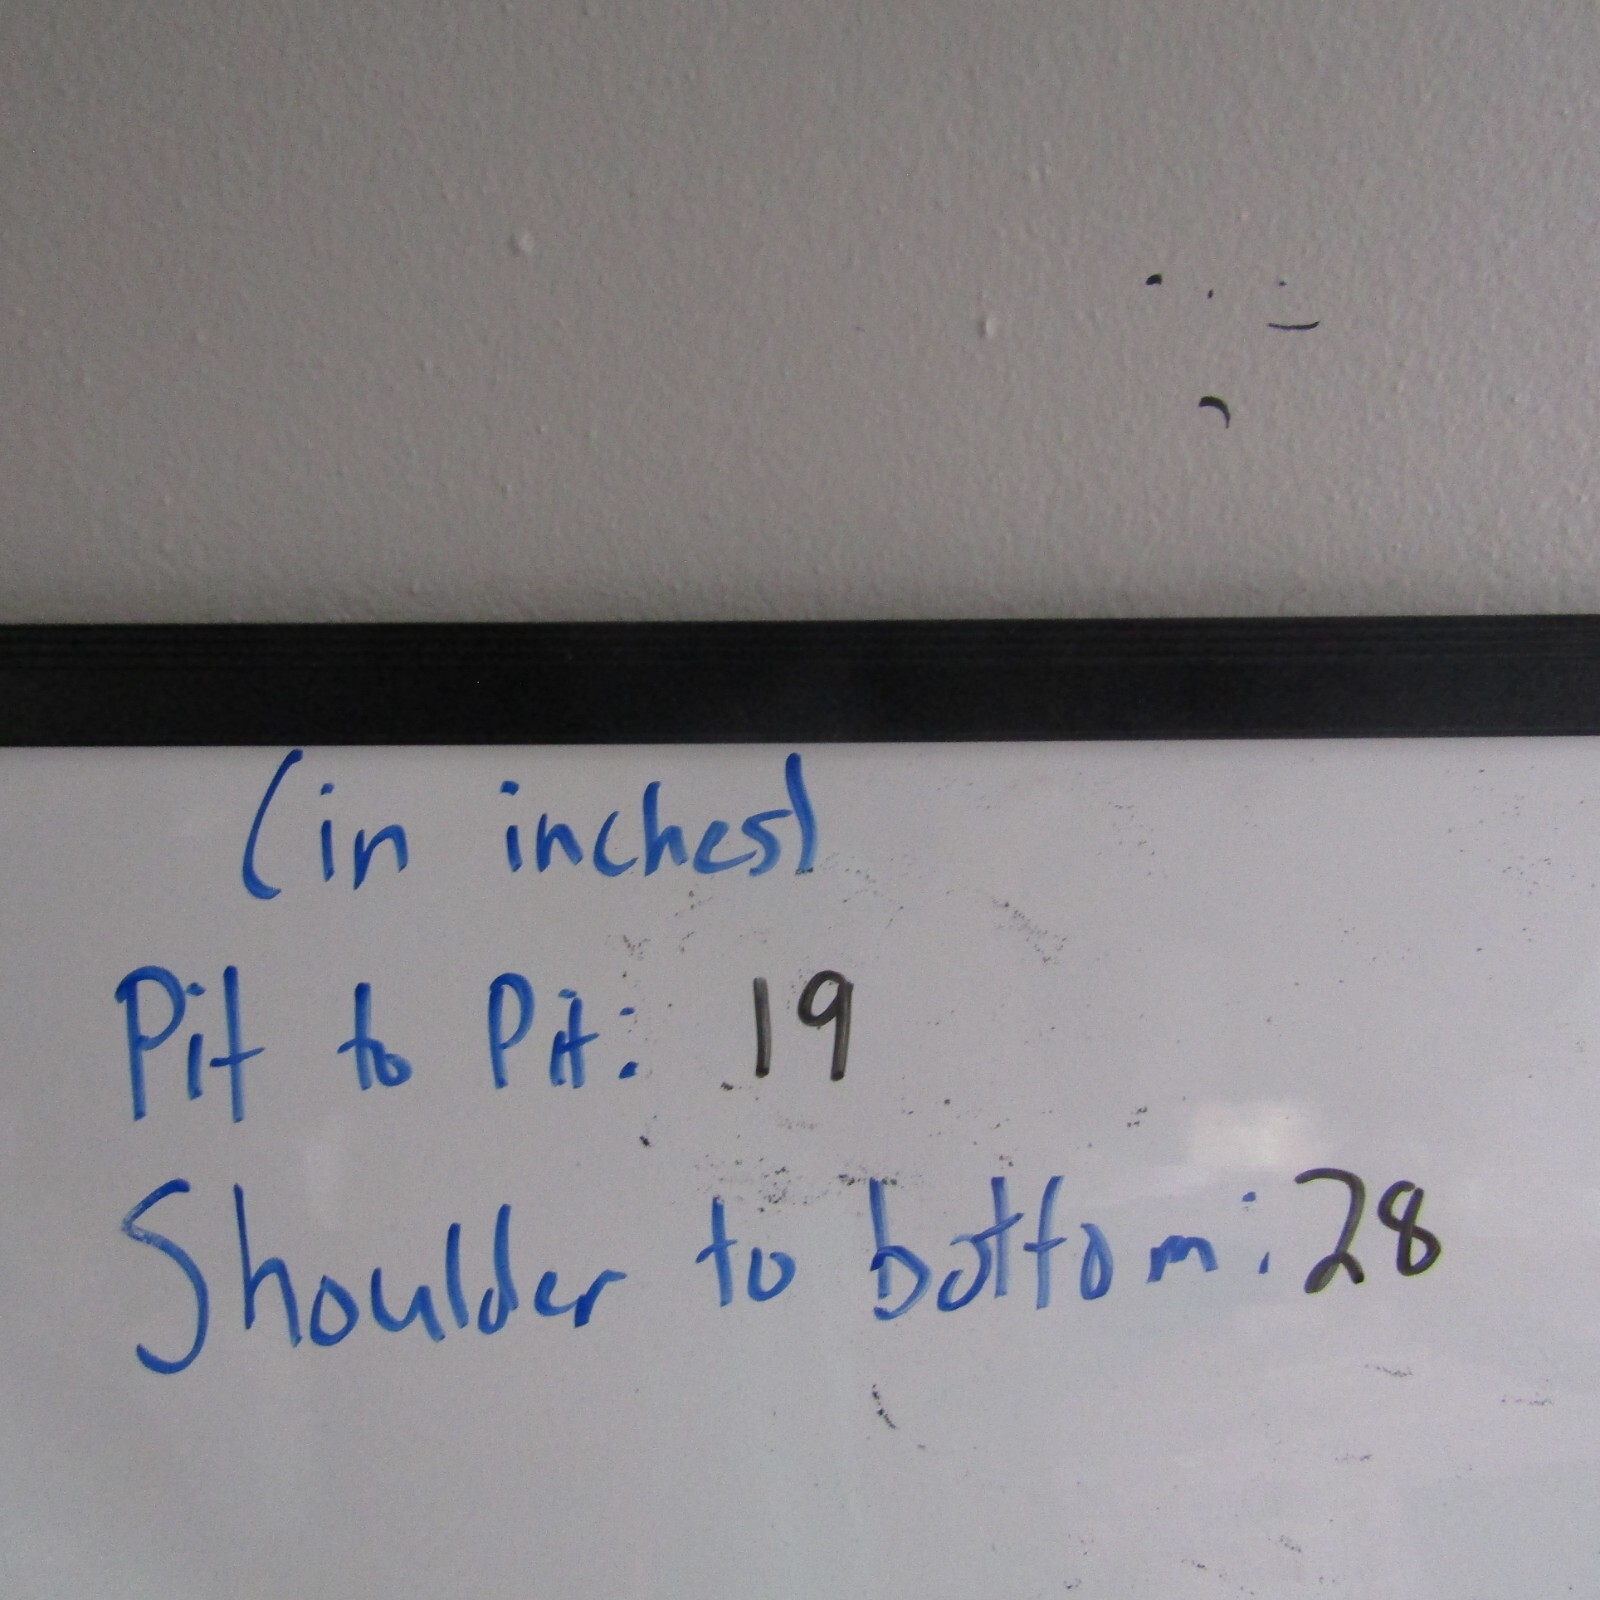 (in inches)
Pit to Pit: 19
Shoulder to bottom: 28